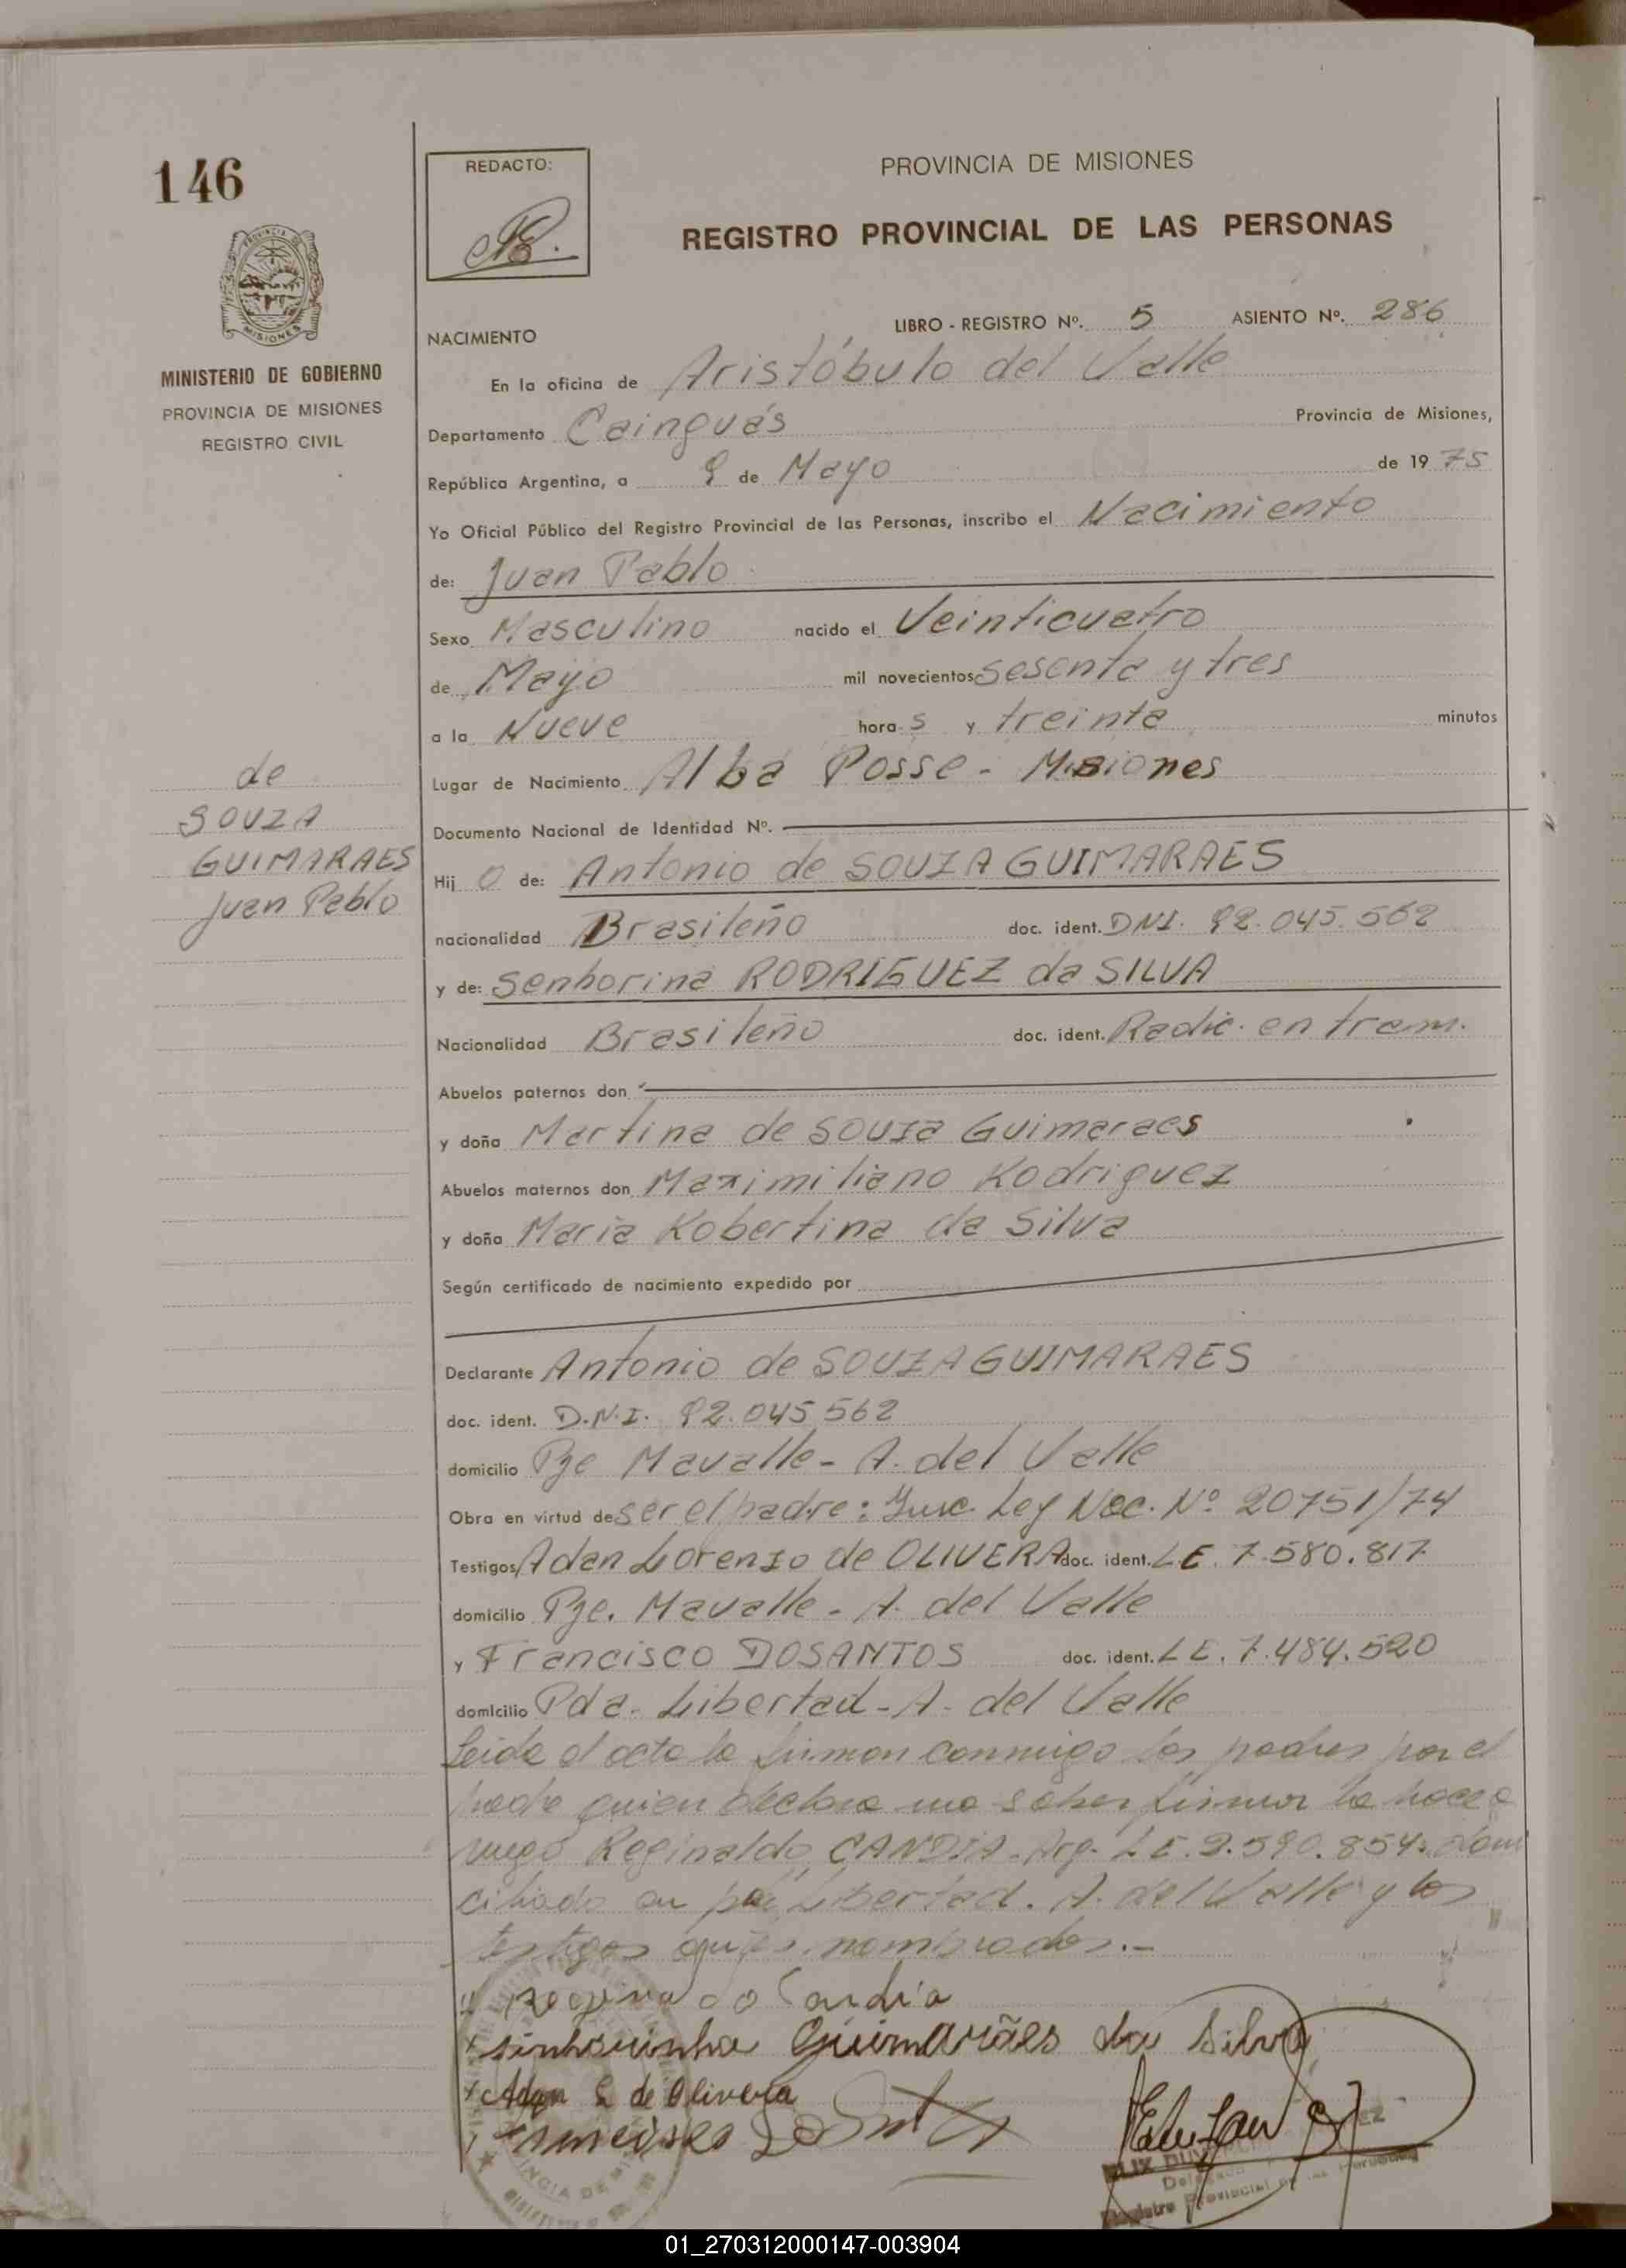 146
REDACTO:
PROVINCIA DE MISIONES
REGISTRO PROVINCIAL DE LAS PERSONAS
MISIONES
MINISTERIO DE GOBIERNO
PROVINCIA DE MISIONES
REGISTRO CIVIL
LIBRO - REGISTRO Nº. 5 ASIENTO Nº. 286
NACIMIENTO
En la oficina de Aristóbulo del Valle
Departamento Cainguás Provincia de Misiones,
República Argentina, a 9 de Mayo de 1975
Yo Oficial Público del Registro Provincial de las Personas, inscribo el Nacimiento
de: Juan Pablo
Sexo Masculino nacido el Veinticuatro
de Mayo mil novecientos sesenta y tres
a la Nueve hora s y treinta minutos
Lugar de Nacimiento Alba Posse - Misiones
de
SOUZA
GUIMARAES
Juan Pablo
Documento Nacional de Identidad Nº.
Hij o de: Antonio de SOUZA GUIMARAES
nacionalidad Brasileño doc. ident. DNI. 92.045.562
y de: Senhorina RODRIGUEZ da SILVA
Nacionalidad Brasileño doc. ident. Radic. en tram.
Abuelos paternos don
y doña Martina de Souza Guimaraes
Abuelos maternos don Maximiliano Rodriguez
y doña Maria Robertina da Silva
Según certificado de nacimiento expedido por
Declarante Antonio de SOUZA GUIMARAES
doc. ident. D.N.I. 92.045562
domicilio Pje Mavalle - A. del Valle
Obra en virtud de ser el padre: Insc. Ley Nac. Nº 20751/74
Testigos Adan Lorenzo de OLIVERA doc. ident. L.E. 7.580.817
domicilio Pje. Mavalle - A. del Valle
y Francisco DOSANTOS doc. ident. L E. 7.484.520
domicilio Pda. Libertad - A. del Valle
Leida el acta la firman conmigo los padres por el
padre quien declara no saber firmar lo hace a
ruego Reginaldo CANDIA - Arg. L E. 2.590.854. domi
ciliado en Libertad. A. del Valle y los
testigos nombrados.-
Reginaldo Candia
sinhorinha Guimarães da Silva
Adan L de Olivera
Francisco Do Santo
Registro Provincial de las Personas
01_270312000147-003904